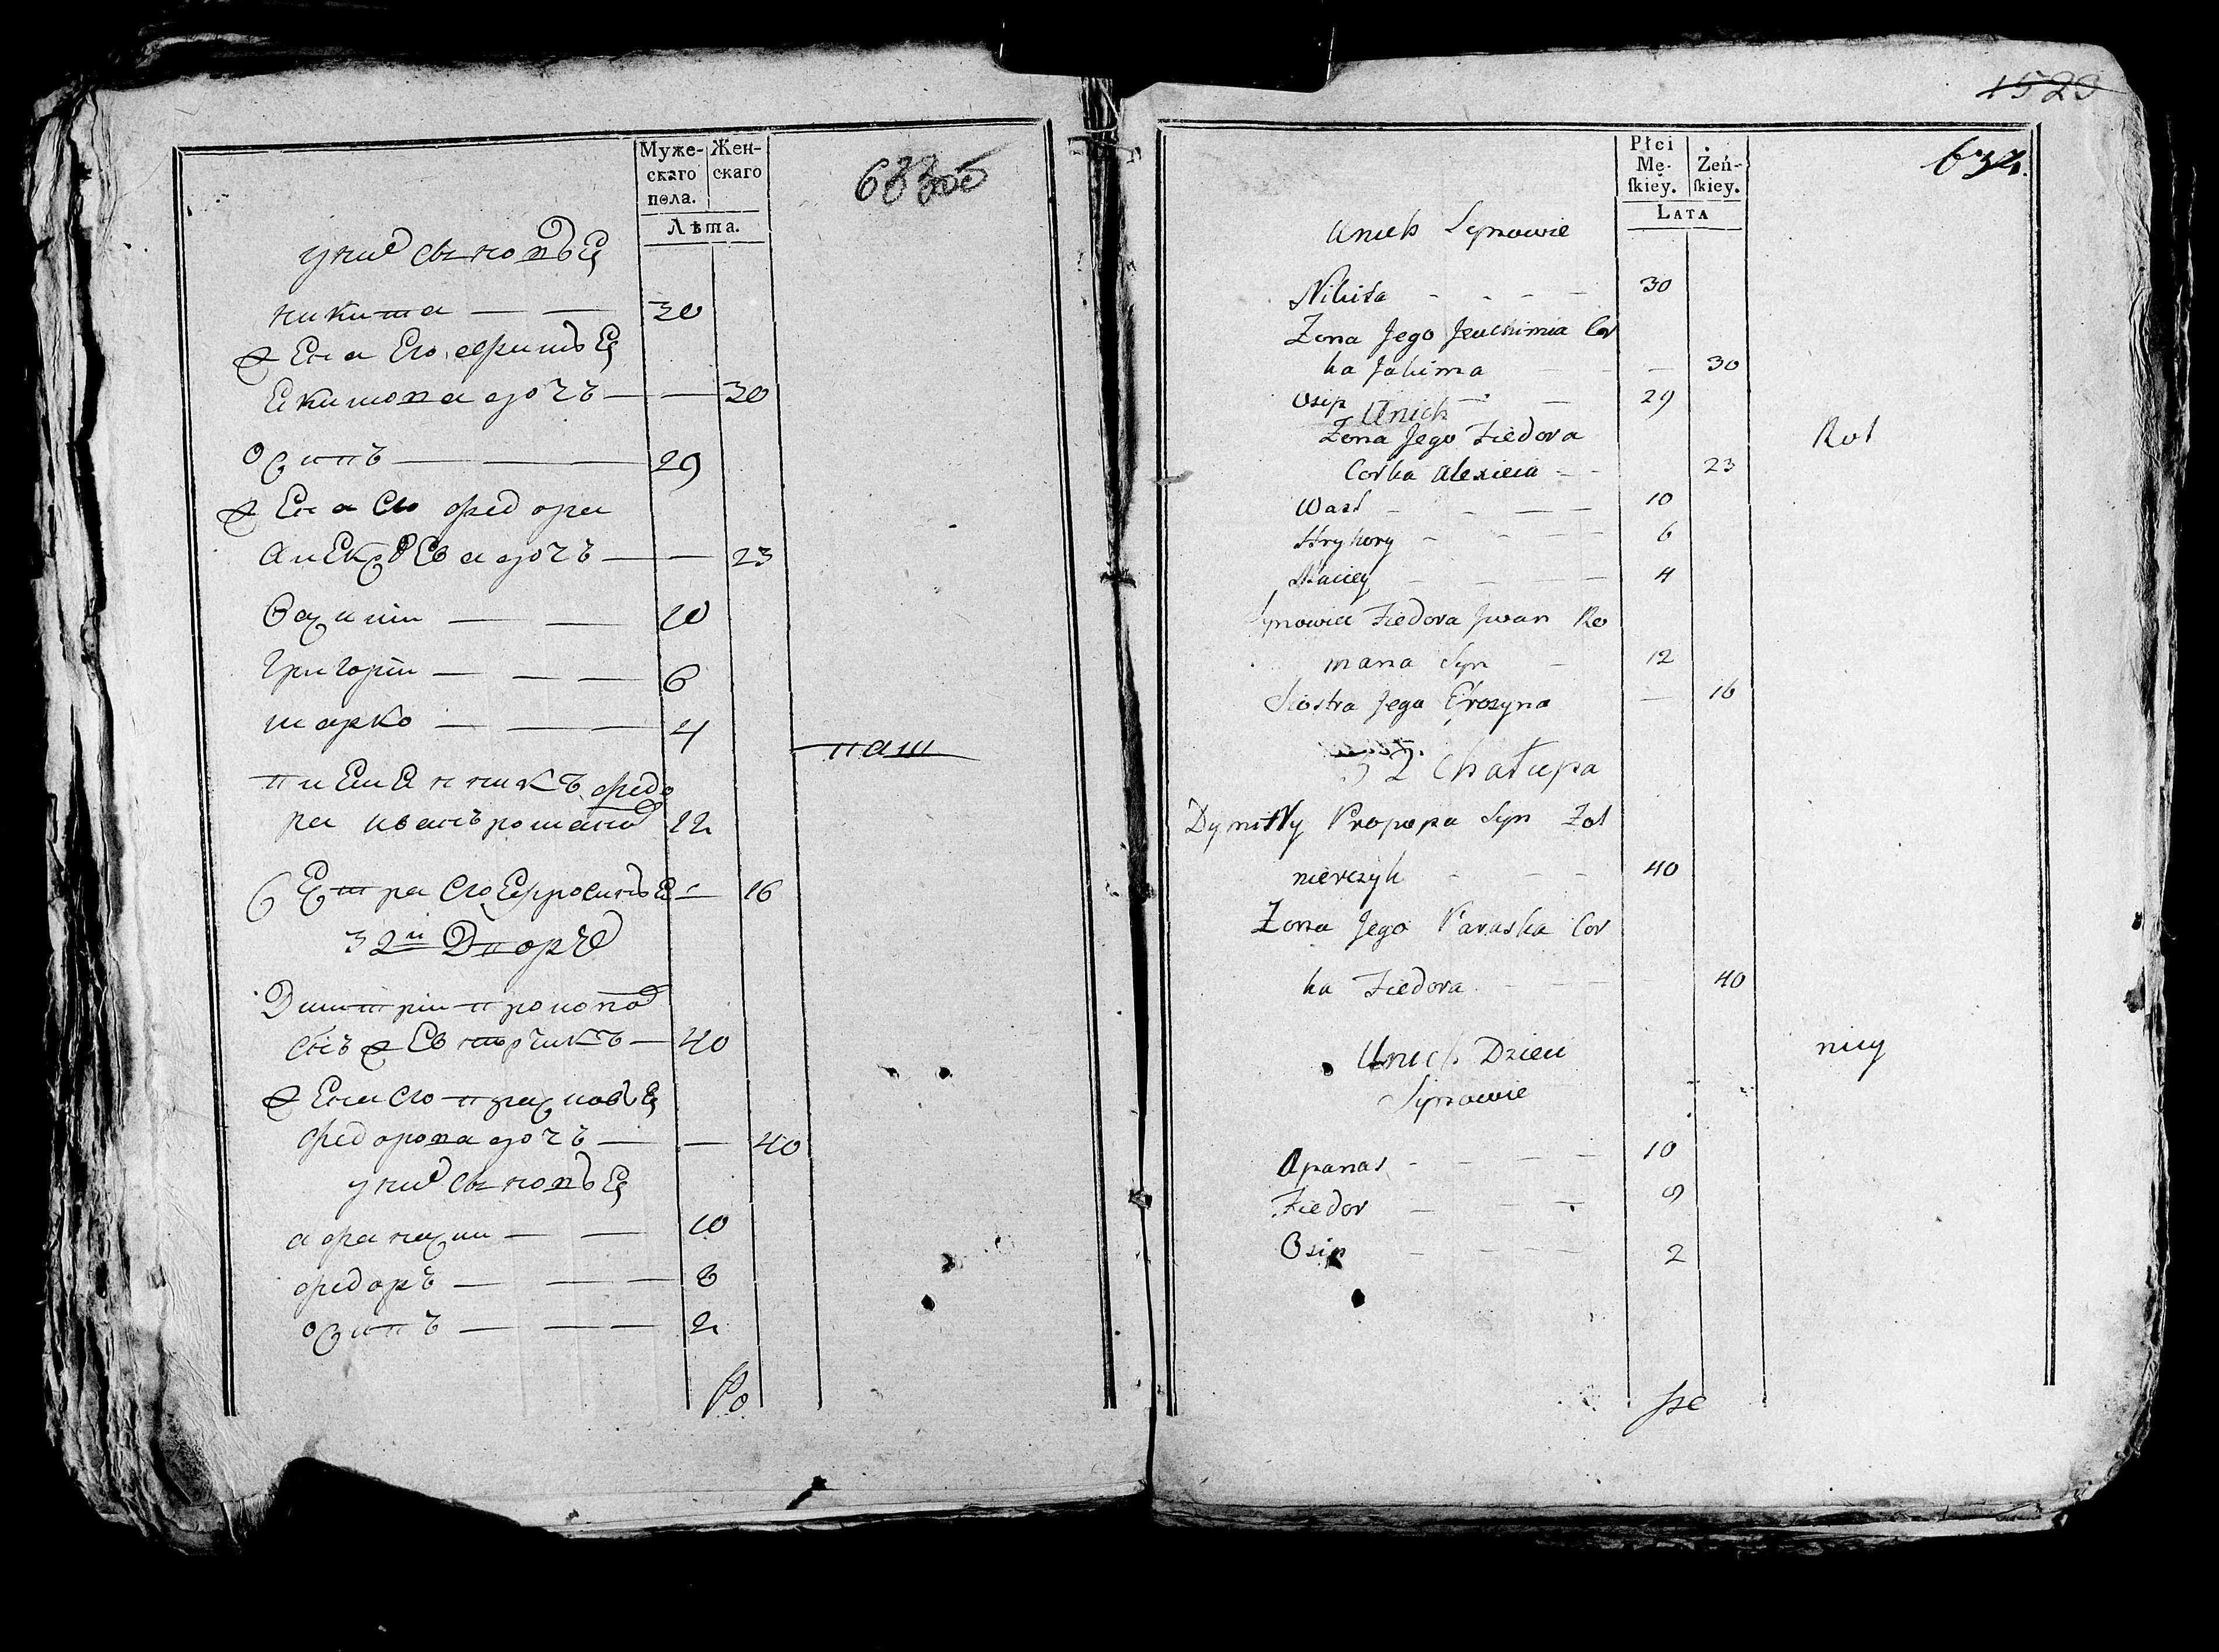 Муже-
скаго
пола.
Жен-
скаго
Лѣта.
633об
у них сыновья
никита — — 30
жена его
екимова дочь — — 30
осипъ — — 29
жена его федора
алексѣева дочь — — 23
василии — — 10
григории — — — 6
марко — — — 4
паш
племенникъ федо
ры иванъ романов 12
сестра его ефросинья — 16
32й Дворъ
Дмитрии прокопов
сынъ жевнерчикъ — 40
жена его прасковья
федорова дочь — — 40
у них сыновья
афанасии — — 10
федоръ — — — 8
осипъ — — — 2
1529
634.
Płci
Mę-
ſkiey.
Żeń-
ſkiey.
LATA
Unich Synowie
Nikita - - - - 30
Zona Jego Jeuchimia Cor
ka Jakima — - — 30
Osip — — 29
Unich
Zona Jego Fiedora
Rol
Corka Alexieia - - 23
Wasil - - — — 10
Hryhory - - - — 6
Maciey - - - — 4
Synowiec Fiedora Jwan Ro
mana Syn - 12
Siostra Jego Efrozyna — 16
32 Chałupa
Dymitry Propopa Syn Zol
nierczyk - - - 40
Zona Jego Paraska Cor
ka Fiedora - - - 40
Unich Dzieci
niiy
Synowie
Apanas - - - — 10
Fiedor - - — 9
Osip - - - - 2